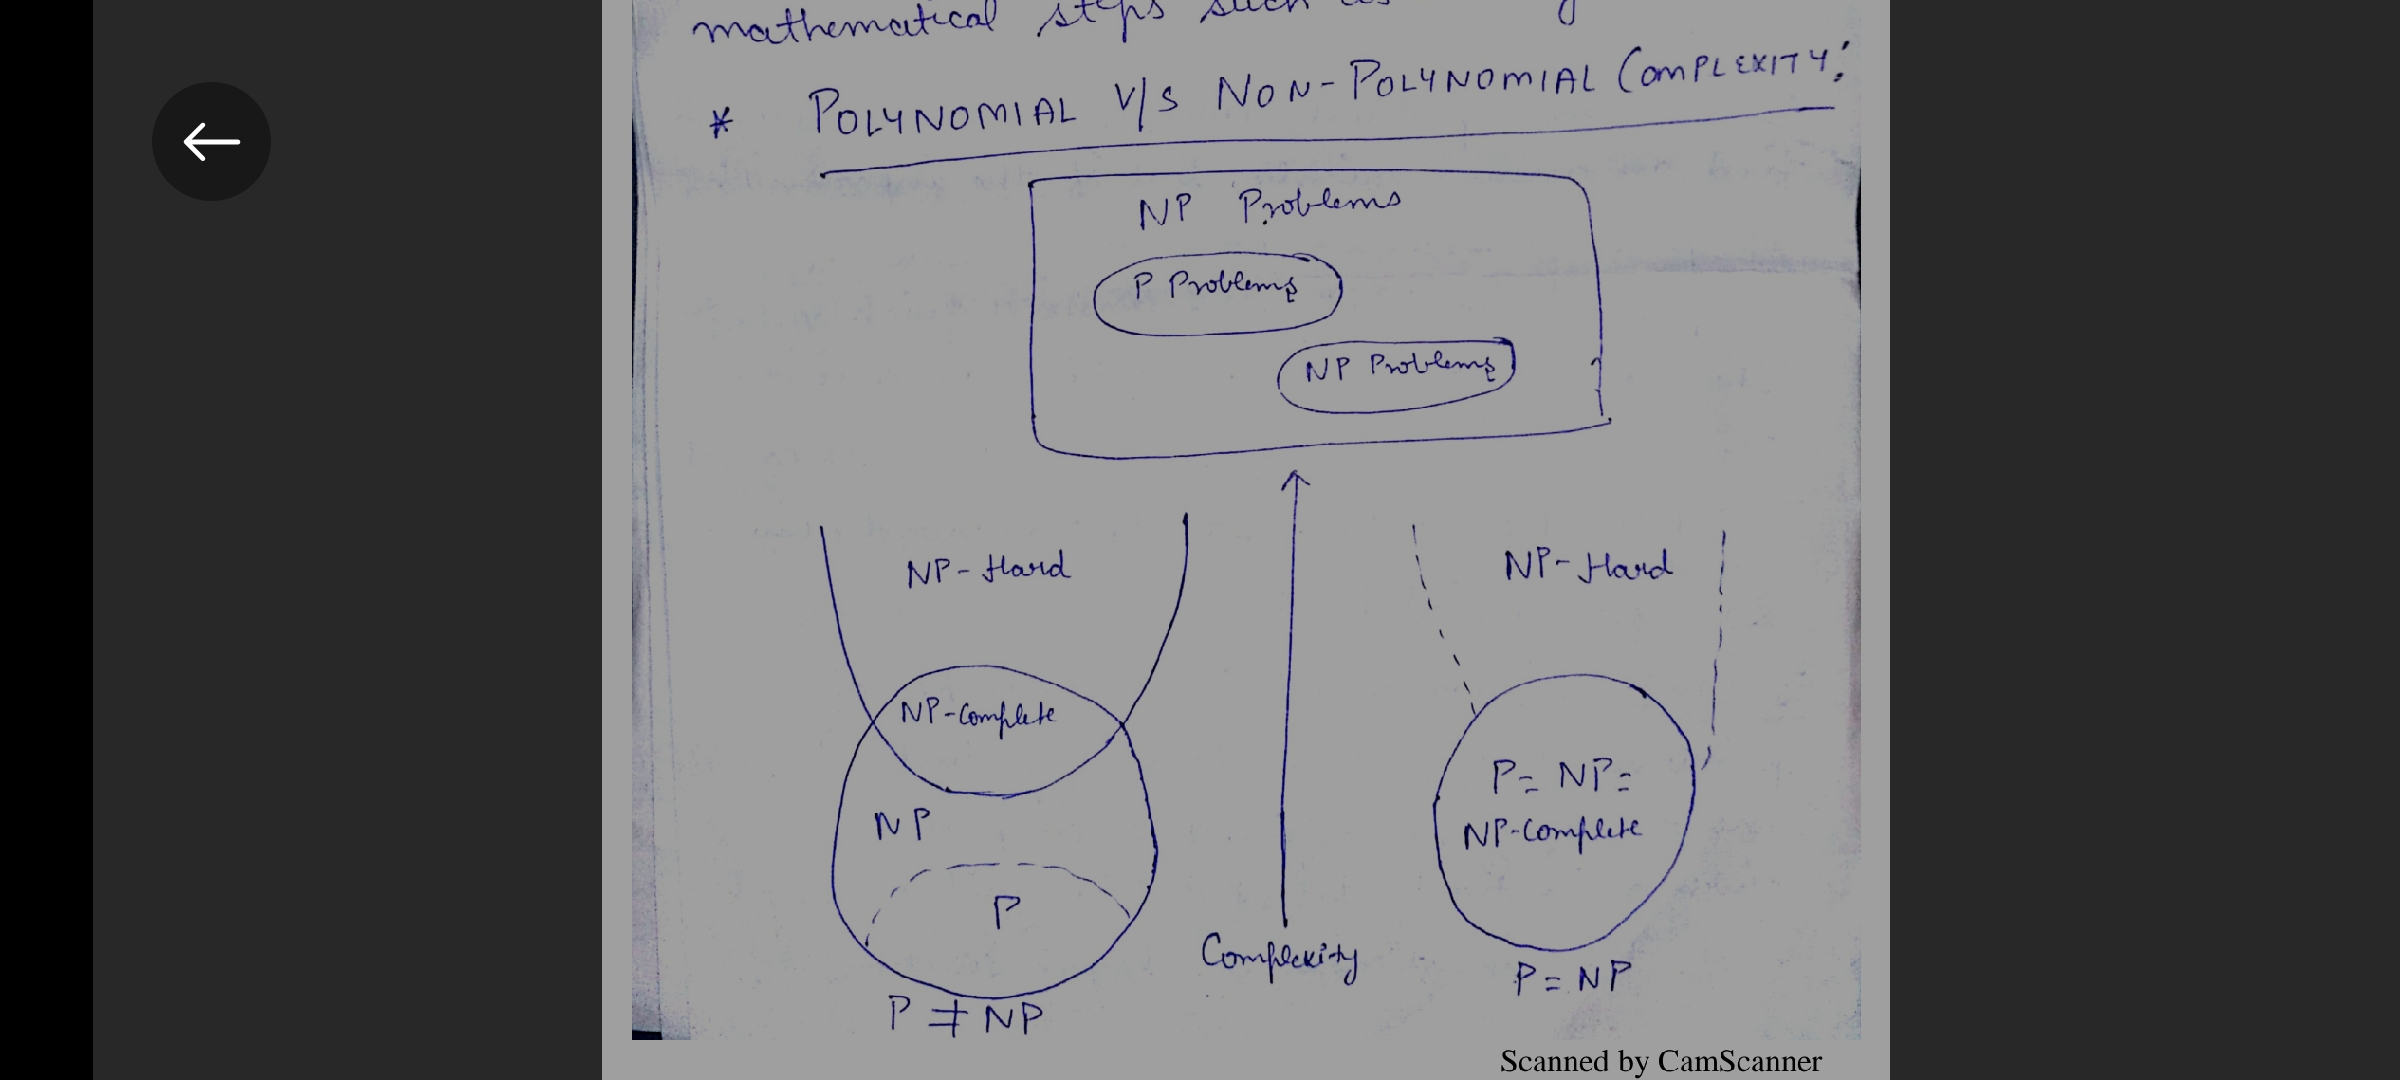 mathematical steps such as
* POLYNOMIAL V/S NON-POLYNOMIAL COMPLEXITY:
NP Problems
P Problems
NP Problems
NP-Hard
NP-Complete
NP
P
P ≠ NP
Complexity
NP-Hard
P = NP =
NP-Complete
P = NP
Scanned by CamScanner